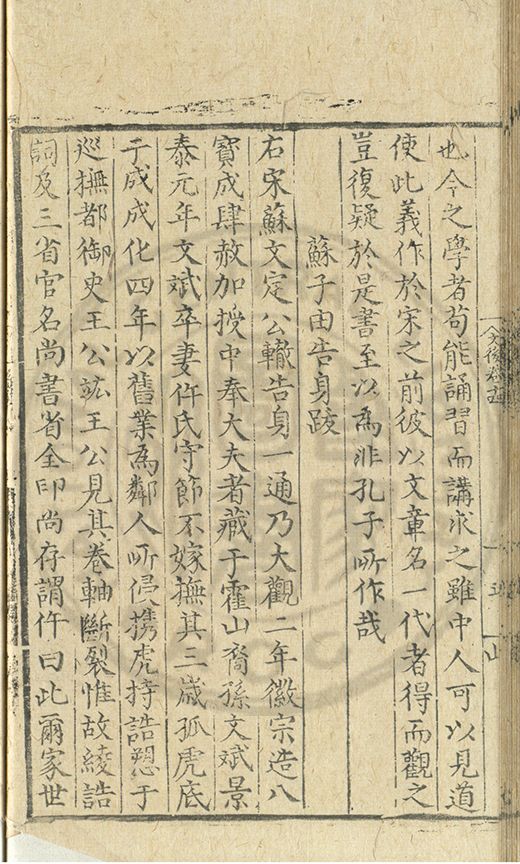 也今之學者苟能誦習而講求之雖中人可以見道
使此義作於宋之前彼以文章名一代者得而觀之
豈復疑於是書至以為非孔子所作哉
蘇子由告身跋
右宋蘇文定公轍告身一通乃大觀二年徽宗造八
寳成肆赦加授中奉大夫者藏于霍山裔孫文斌景
泰元年文斌卒妻仵氏守節不嫁撫其三歲孤虎底
于成成化四年以舊業為鄰人所侵携虎持誥愬于
巡撫都御史王公竑王公見其卷軸斷裂惟故綾誥
詞及三省官名尚書省全印尚存謂仵曰此爾家世